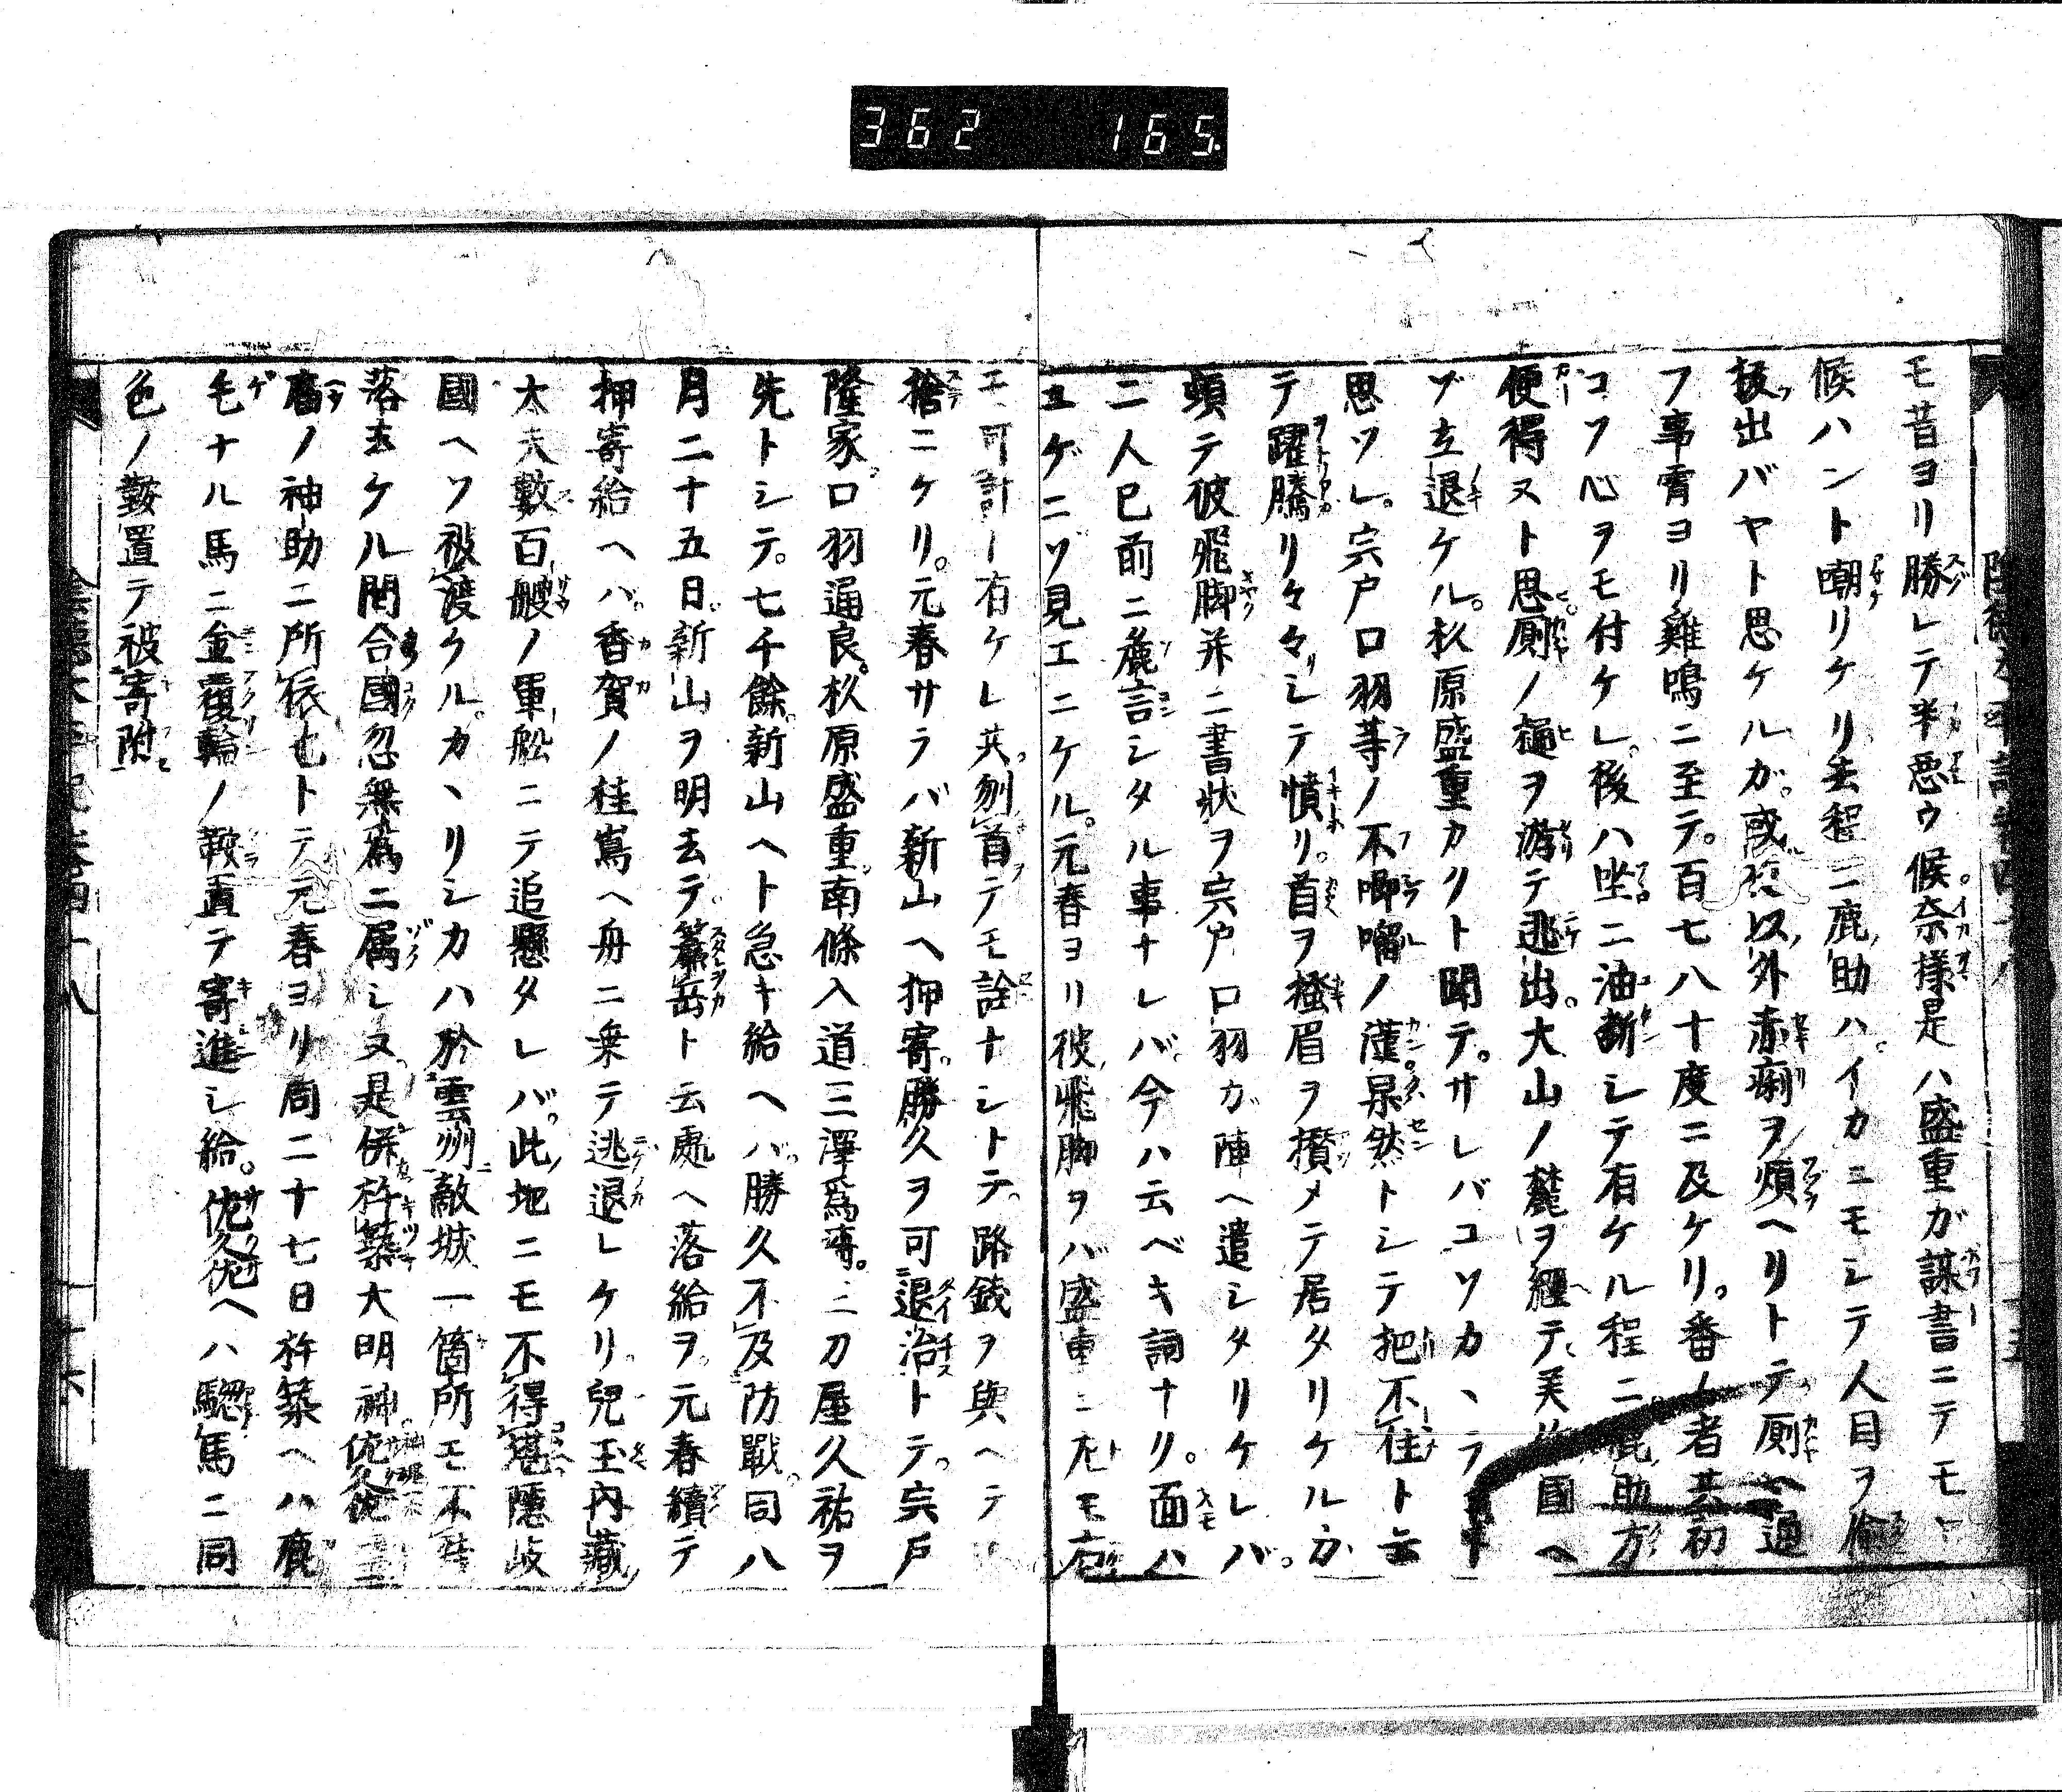 362 165.
モ昔ヨリ勝レテ半悪ウ候奈様是ハ盛重ガ謀書ニテモ
候ハント嘲リケリ去程ニ鹿助ハイカニモシテ人目ヲ偷
扱出バヤト思ケルガ。或夜以外赤痢ヲ煩ヘリトテ厠ヘ通
フ事宵ヨリ雞鳴ニ至テ。百七八十度ニ及ケリ。番ノ者甚初
コソ心ヲモ付ケレ。後ハ坐ニ油斷シテ有ケル程ニ鹿助方
便得ヌト思。厠ノ樋ヲ游テ逃出。大山ノ麓ヲ經テ美作國ヘ
ゾ立退ケル。杦原盛重カクト聞テ。サレバコソカヽラント
思ツレ。宍戸口羽等ノ不唧𠺕ノ漢。呆然トシテ把不住ト云
テ躍騰リ々々シテ憤リ。首ヲ搔眉ヲ攅メテ居タリケルカ
頓テ彼飛脚并ニ書狀ヲ宍戸口羽ガ陣ヘ遣シタリケレバ。
二人已前ニ麁言シタル事ナレバ今ハ云ベキ詞ナリ。面ハ
ユゲニソ見エニケル。元春ヨリ彼飛脚ヲバ盛重ニ尤モ
可計ー有ケレ共。刎首テモ詮ナシトテ。路錢ヲ與ヘテ
捨ニケリ。元春サラバ新山ヘ押寄。勝久ヲ可退治トテ。宍戸
隆家口羽通良。杦原盛重南條入道三澤爲淸。三刀屋久祐ヲ
先トシテ。七千餘新山ヘト急キ給ヘバ勝久不及防戰。同八
月二十五日。新山ヲ明去テ。簾岳ト云處ヘ落給ヲ。元春續テ
押寄給ヘハ。香賀ノ桂嶌ヘ舟ニ乗テ逃退レケリ。兒玉內藏
大夫數百艘ノ軍舩ニテ追懸タレバ。此地ニモ不得堪隱岐
國ヘソ被渡ケル。カヽリシカハ於雲州敵城一箇所モ不
落去ケル間合國忽無爲ニ属シヌ。是併杵築大明神。佐久佐
ノ神助ニ所依也トテ元春ヨリ同二十七日杵築ヘハ鹿
毛ナル馬ニ金覆輪ノ鞍置テ寄進シ給。佐久佐ヘハ騘馬ニ同
色ノ鞍置テ被寄附